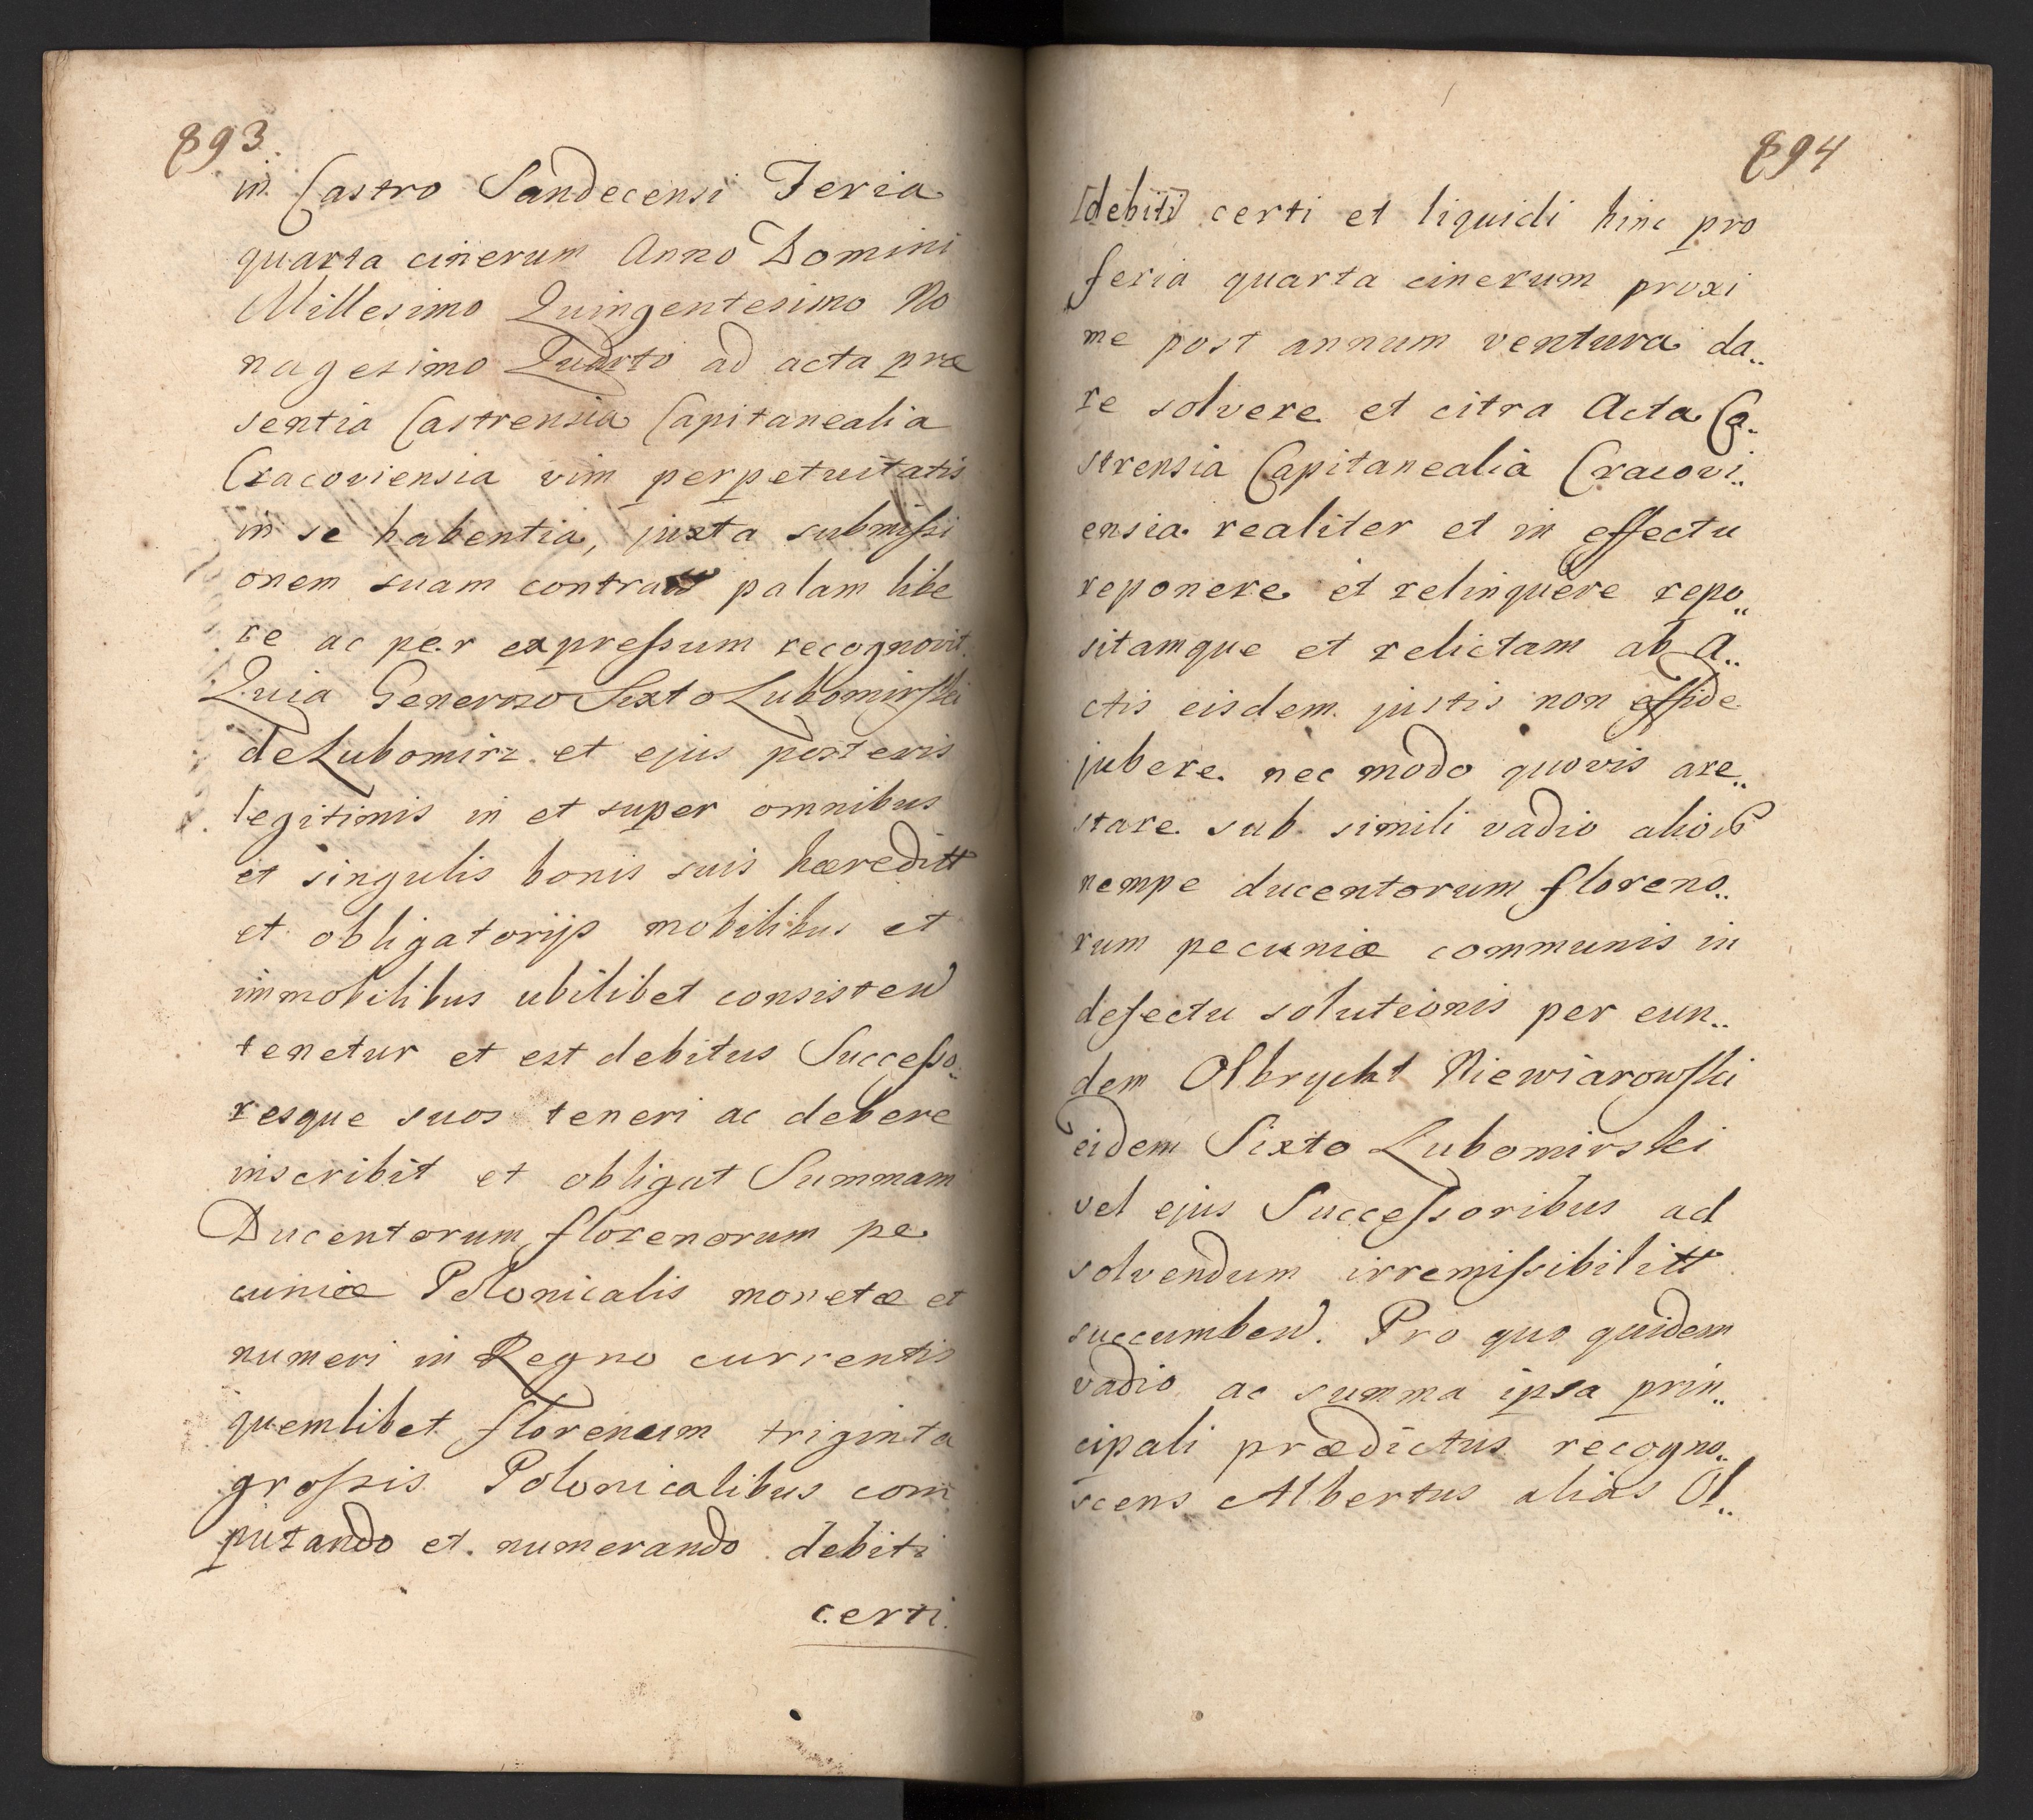 893.
in Castro Sandecensi Feria
quarta cinerum Anno Domini
Millesimo Quingentesimo No
nagesimo Quarto ad acta præ
sentia Castrensia Capitanealia
Cracoviensia vim perpetuitatis
in se habentia, juxta submissi
onem suam palam libe
re ac per expressum recognovit.
Quia Generoso Sixto Lubomirski
de Lubomirz et ejus posteris
legitimis in et super omnibus
et singulis bonis suis hæreditt
et obligatorijs mobilibus et
immobilibus ubilibet consisten
tenetur et est debitus Successo..
resque suos teneri ac debere
inscribit et obligat Summam
Ducentorum florenorum pe
cuniæ Polonicalis monetæ et
numeri in Regno currentis
quemlibet florenum triginta
grossis Polonicalibus com
putando et numerando debiti
certi.
894
[debiti] certi et liquidi hinc pro
feria quarta cinerum proxi
me post annum ventura da..
re solvere et citra Acta Ca..
strensia Capitanealia Cracovi..
ensia realiter et in effectu
reponere et relinquere repo..
sitamque et relictam ab A..
ctis eisdem justis non effide
jubere nec modo quovis are..
stare sub simili vadio
nempe ducentorum floreno..
rum pecuniæ communis in
defectu solutionis per eun..
dem Olbrycht Niewiarowski
eidem Sixto Lubomirski
vel ejus Successoribus ad
solvendum irremissibilitt
succumben. Pro quo quidem
vadio ac summa ipsa prin..
cipali prædictus recogno..
scens Albertus alias Ol..